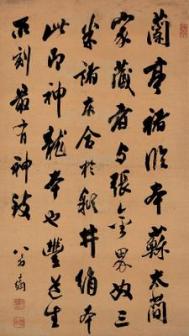 蘭亭褚臨本蘇太簡
家藏者与張金界奴三
米諸本合於潁井絹本
此即神龍本也豐道生
所刻最有神致